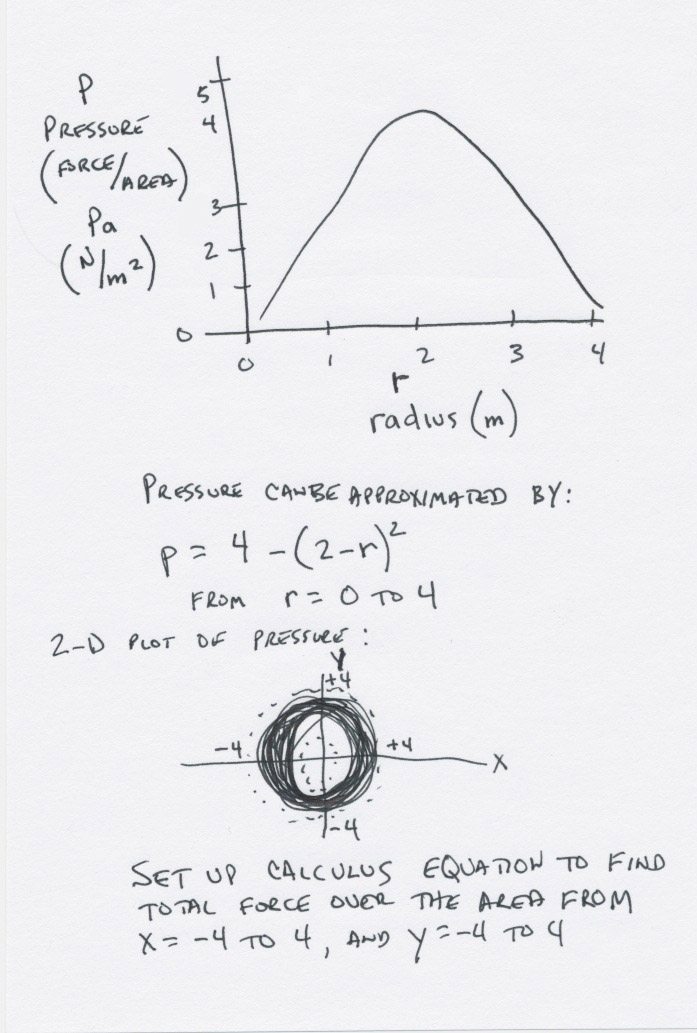 P
PRESSURE
(FORCE/AREA)
Pa
(N/m²)
5
4
3
2
1
0
0 1 2 3 4
r
radius (m)
PRESSURE CAN BE APPROXIMATED BY:
p = 4 - (2-r)²
FROM r = 0 TO 4
2-D PLOT OF PRESSURE:
Y
+4
-4 +4 X
-4
SET UP CALCULUS EQUATION TO FIND
TOTAL FORCE OVER THE AREA FROM
X = -4 TO 4, AND Y = -4 TO 4